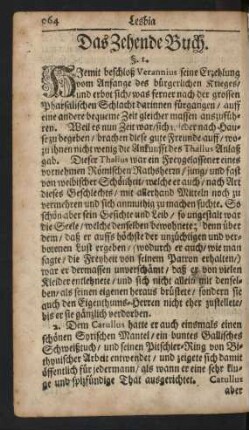 964 Lesbia
Das Zehende Buch.
§. 1.
HJemit beschloß Verannius seine Erzehlung
vom Anfange des bürgerlichen Krieges/
und erbot sich/ was ferner nach der grossen
Pharsalischen Schlacht darinnen fürgangen/ auff
eine andere bequeme Zeit gleicher massen auszufüh-
ren. Weil es nun Zeit war/ sich iedernach Hau-
se zu begeben/ brachen diese gute Freunde auff/ wo-
zu ihnen nicht wenig die Ankunft des Thallus Anlaß
gab. Dieser Thallus war ein Freygelassener eines
vornehmen Römischen Rathsherrn/ jung/ und fast
von weibischer Schönheit/ welche er auch/ nach Art
dieses Geschlechtes/ mit allerhand Mitteln noch zu
vermehren und sich anmuthig zu machen suchte. So
schön aber sein Gesichte und Leib/ so ungestalt war
die Seele/ welche denselben bewohnete; denn über
dem/ daß er auffs höchste der unzüchtigen und ver-
botenen Lust ergeben/ (wodurch er auch/ wie man
sagte/ die Freyheit von seinem Patron erhalten/)
war er dermassen unverschämt/ daß er von vielen
Kleider entlehnete/ und sich nicht alleine mit densel-
ben/ als seinen eigenen heraus brüstete/ sondern sie
auch den Eigenthums-Herren nicht eher zustellete/
bis er sie gänzlich verdorben.
2. Dem Catullus hatte er auch einsmals einen
schönen Syrischen Mantel/ ein buntes Gallisches
Schweißtuch/ und seinen Pitschier-Ring von Bi-
thynischer Arbeit entwendet/ und zeigete sich damit
öffentlich für jedermann/ als wann er eine sehr klu-
ge und spizfündige That ausgerichtet. Catullus
aber